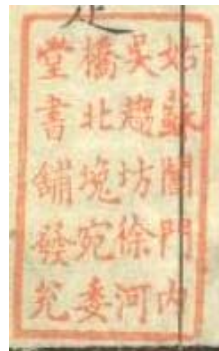 姑蘇閶門內
吳趨坊徐河
橋北堍宛委
堂書舖發兌